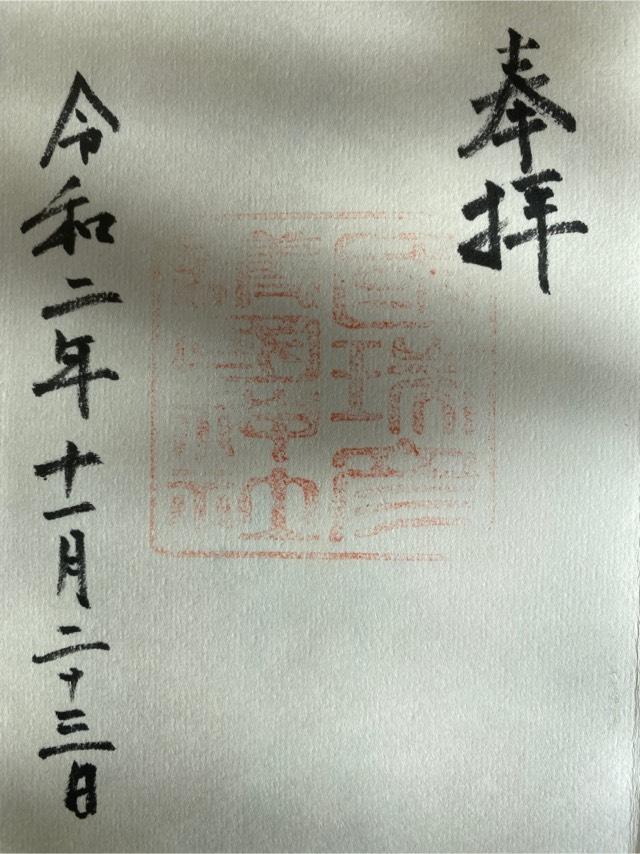 奉拝
令和二年十一月二十三日